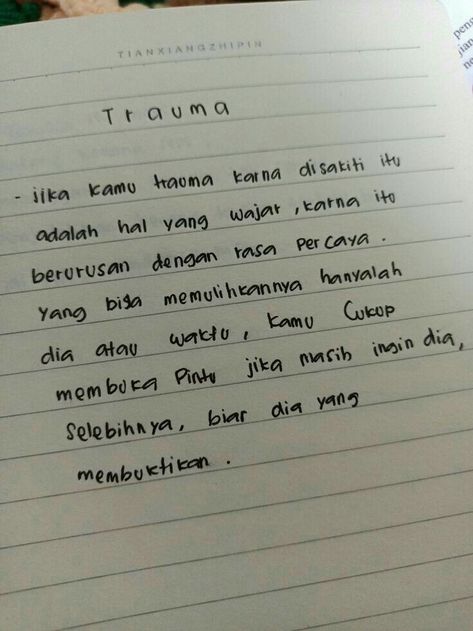 TIANXIANGZHIPIN
Trauma
- Jika kamu trauma karna disakiti itu
adalah hal yang wajar, karna ito
berurusan dengan rasa percaya.
yang bisa memulihkannya hanyalah
dia atau waktu, kamu Cukup
membuka Pintu jika masih ingin dia,
selebihnya, biar dia yang
membuktikan.
pens
jian